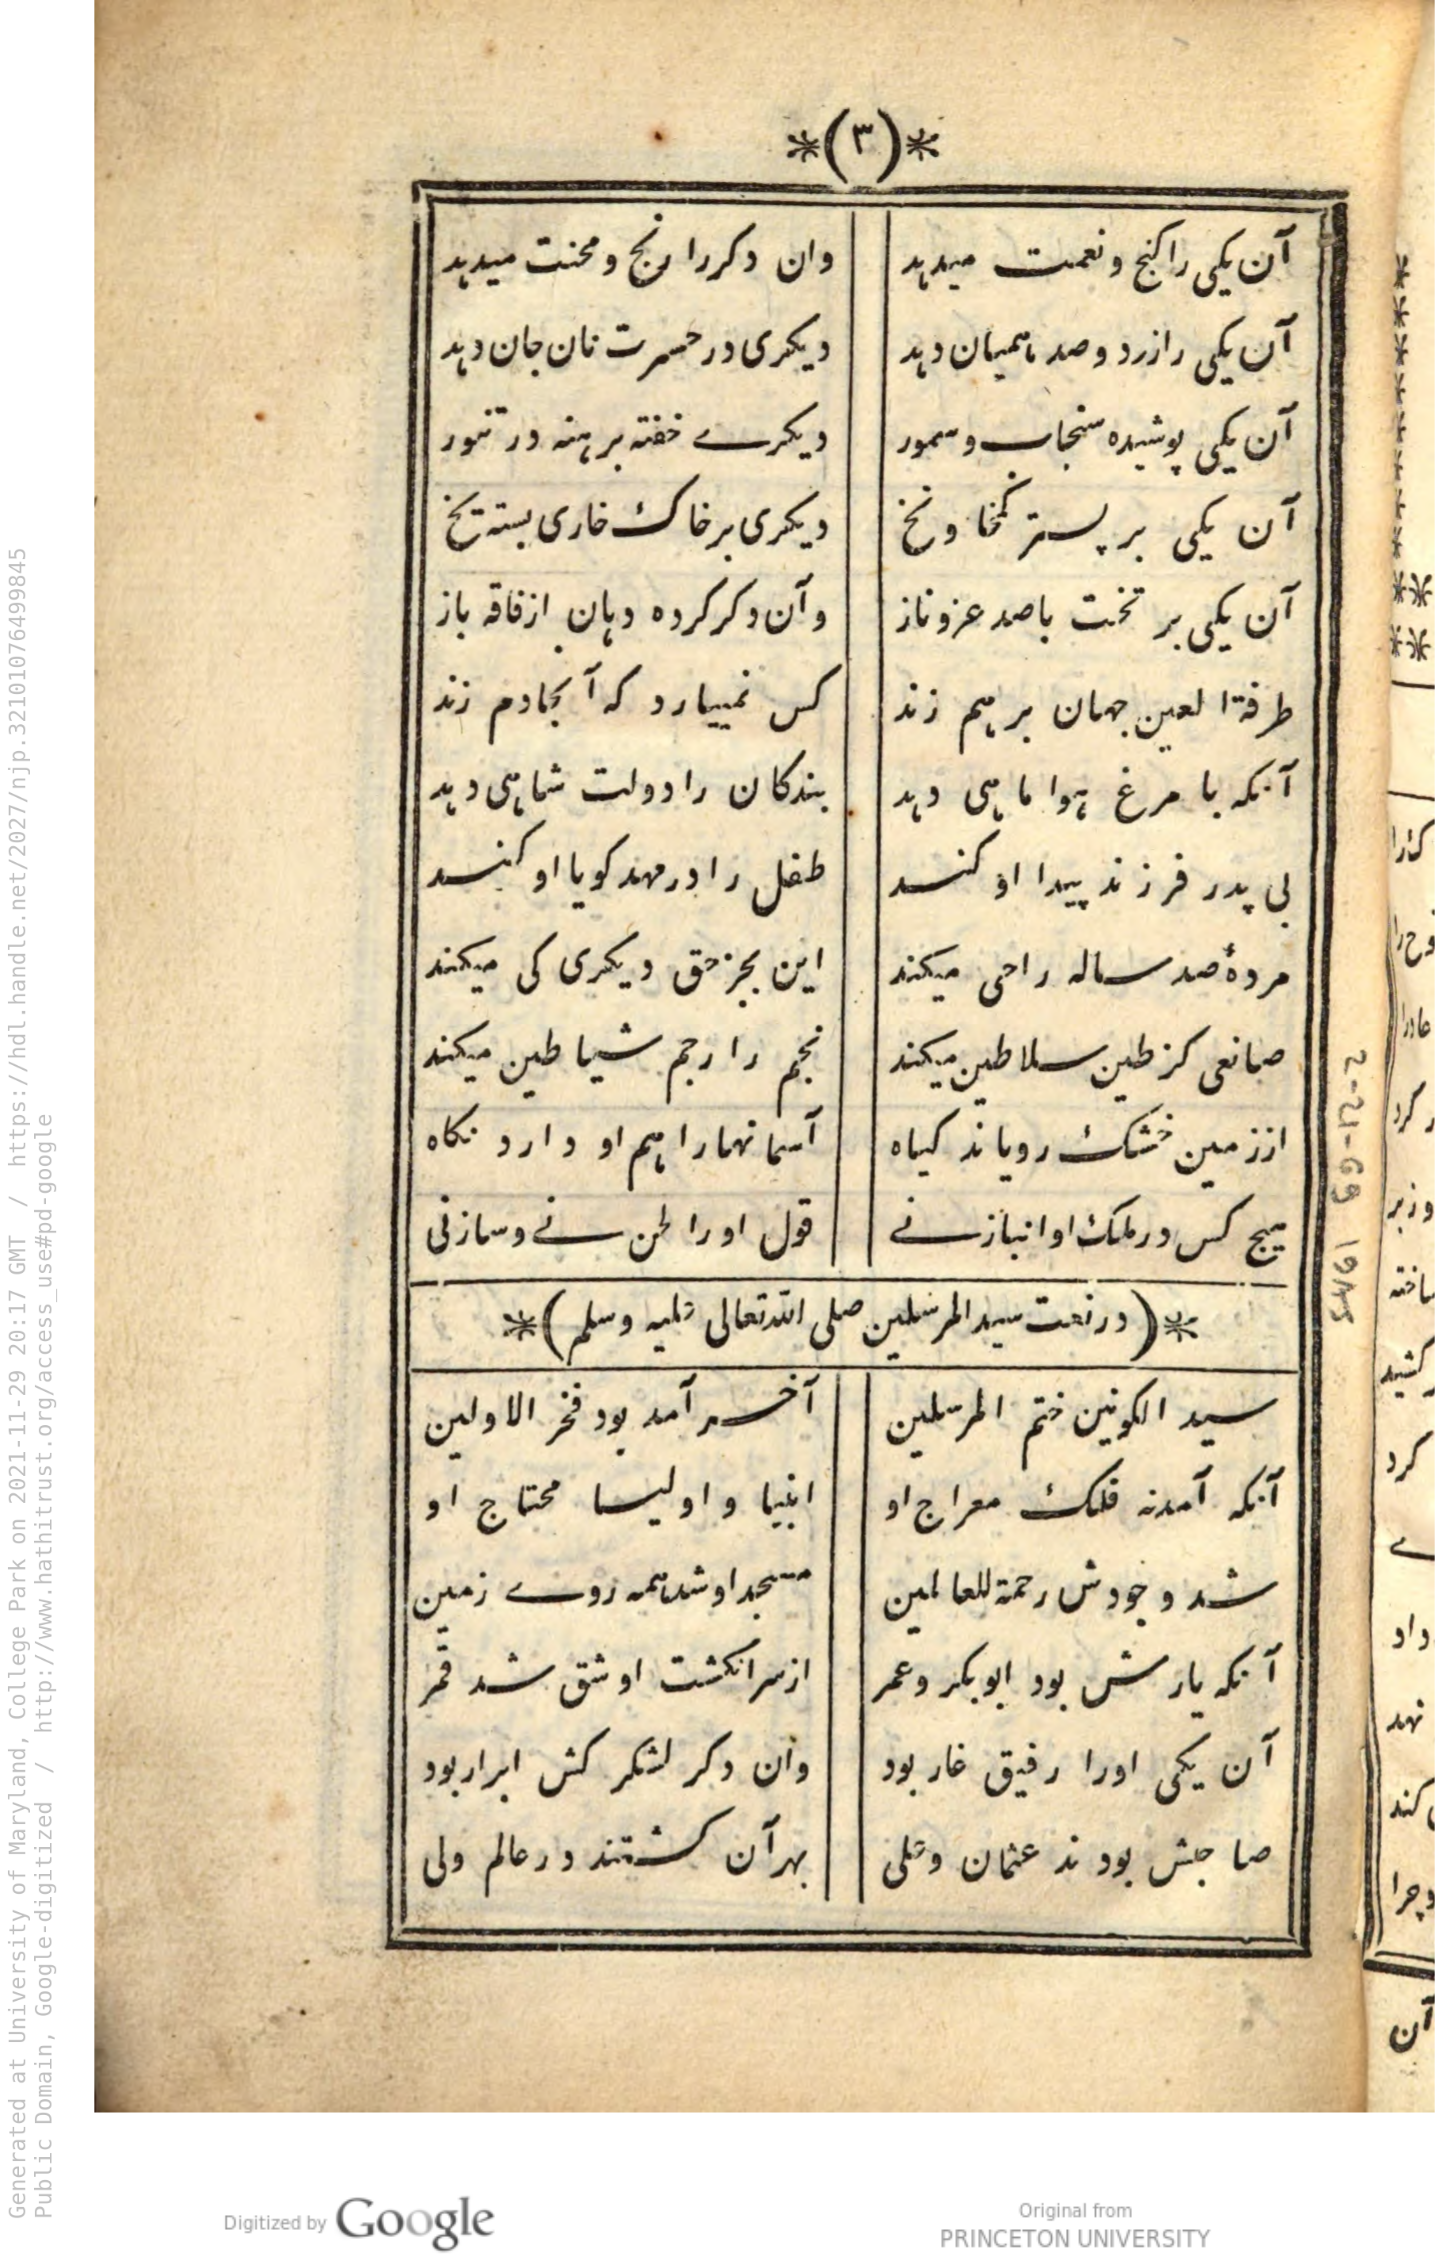 *(٣)*
آن یکی را کنج و نعمت میدهد وان دکر را رنج و محنت میدهد
آن یکی را زر دوصد همیان دهد دیکری در حسرت نان جان دهد
آن یکی پوشیده سنجاب و سمور دیکرے خفته برهنه در تنور
آن یکی بر بستر کمخا و نخ دیکری بر خاک خاری بسته یخ
آن یکی بر تخت با صد عز و ناز وآن دکر کرده دهان از فاقه باز
طرفة العین جهان برهم زند کس نمییارد که آنجا دم زند
آنکه با مرغ هوا ماهی دهد بندکان را دولت شاهی دهد
بی پدر فرزند پیدا او کند طفل را در مهد کویا او کند
مردهٔ صد ساله را حی میکند این بجز حق دیکری کی میکند
صانعی کز طین سلاطین میکند نجم را رجم شیاطین میکند
از زمین خشک رویاند کیاه آسمانها را هم او دارد نکاه
هیچ کس در ملک او انباز نے قول او را لحن نے و ساز نی
*(در نعت سید المرسلین صلی الله تعالی علیه وسلم)*
سید الکونین ختم المرسلین آخر آمد بود فخر الاولین
آنکه آمد نه فلک معراج او انبیا و اولیا محتاج او
شد وجودش رحمة للعالمین مسجد او شد همه روے زمین
آنکه یارش بود ابوبکر و عمر از سر انکشت او شق شد قمر
آن یکی اورا رفیق غار بود وان دکر لشکر کش ابرار بود
صاحبش بودند عثمان و علی بهر آن کشتند در عالم ولی
2-21-69 1945
Generated at University of Maryland, College Park on 2021-11-29 20:17 GMT / https://hdl.handle.net/2027/njp.32101076499845
Public Domain, Google-digitized / http://www.hathitrust.org/access_use#pd-google
Digitized by Google
Original from
PRINCETON UNIVERSITY